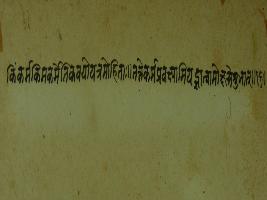 किं कर्म किमकर्मेति कवयोप्यत्र मोहिताः॥ तत्ते कर्म प्रवक्ष्यामि यज्ज्ञात्वा मोक्ष्यसेशुभात्॥१६॥